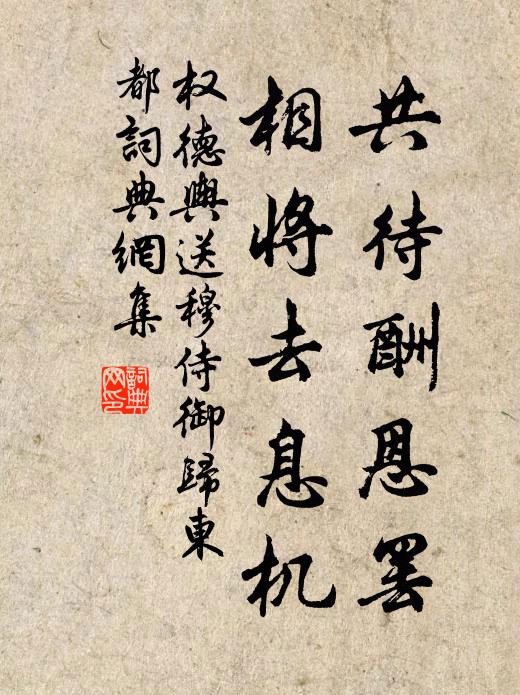 共待酬恩罢
相將去息机
权德輿送穆侍御歸東
都詞典網集
詞典
网印